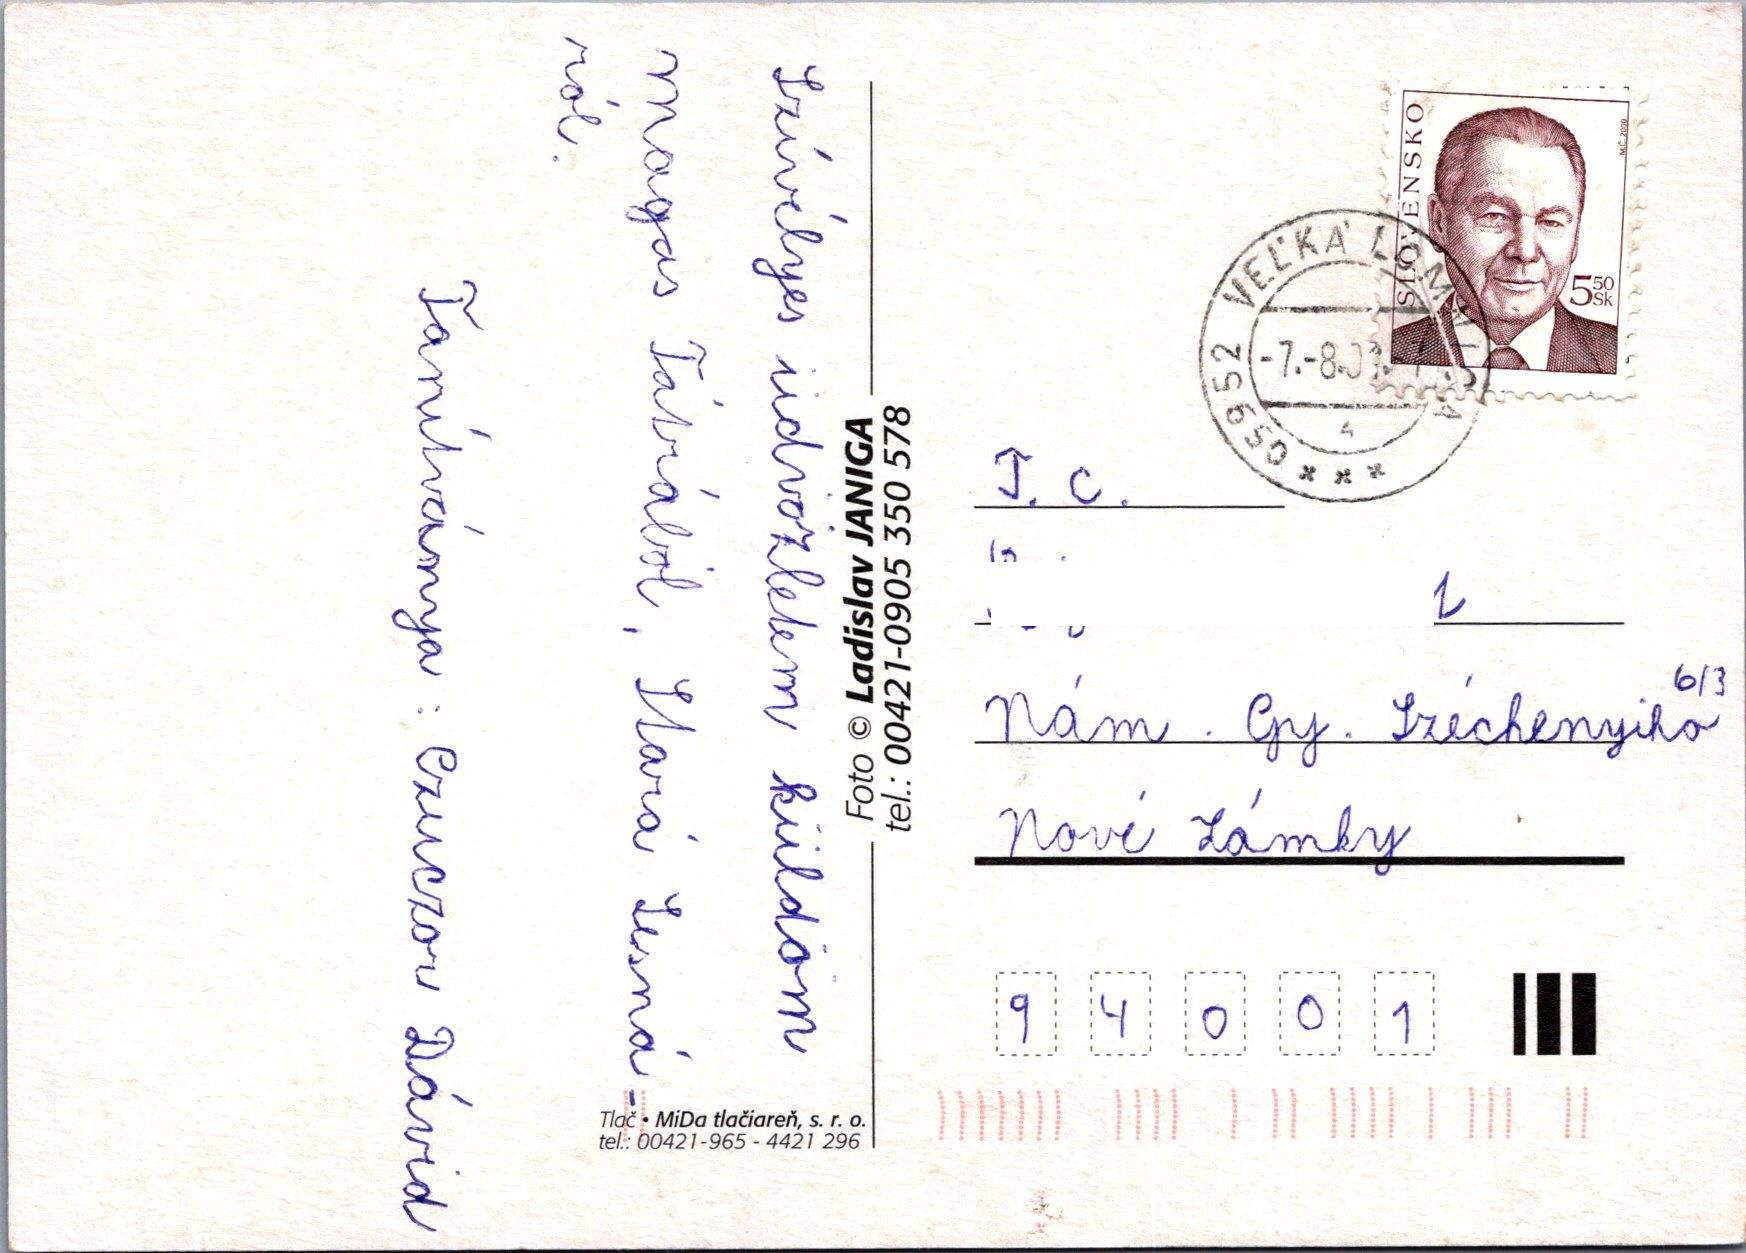 Szívélyes üdvözletem küldöm
Magas Tátrából, Stará Lesná-
ról.
Tanítványa: Czuczor Dávid
Foto © Ladislav JANIGA
tel.: 00421-0905 350 578
Tlač • MiDa tlačiareň, s. r. o.
tel.: 00421-965 - 4421 296
SLOVENSKO
550 Sk
M.Č. 2000
059 52 VEĽKÁ LOMNICA
-7.-8.
T. C.
Nám. Gy. Széchenyiho 6/3
Nové Zámky
94001